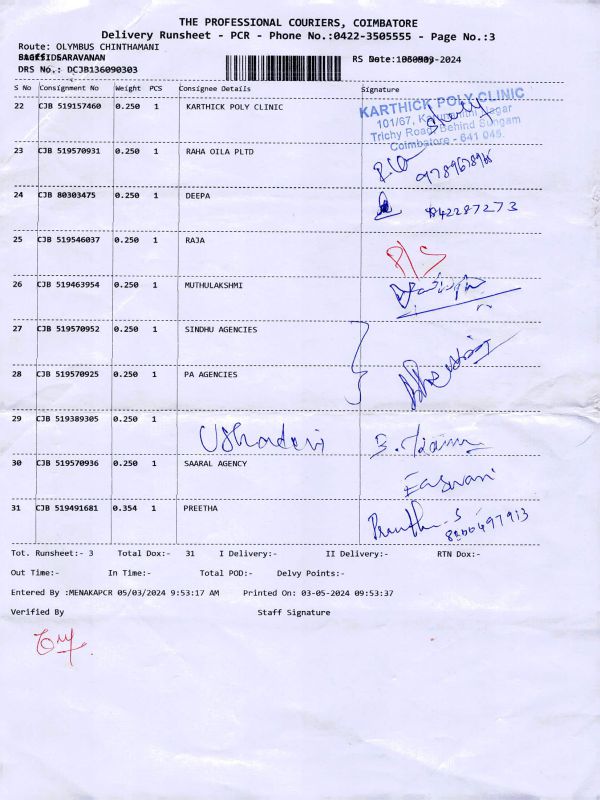 THE PROFESSIONAL COURIERS, COIMBATORE
Delivery Runsheet - PCR - Phone No.:0422-3505555 - Page No.:3
Route: OLYMBUS CHINTHAMANI
SARAVANAN
DRS No.: DCJB136090303
S No Consignment No Weight PCS Consignee Details Signature
22 CJB 519157460 0.250 1 KARTHICK POLY CLINIC
KARTHICK POLY CLINIC
101/67,
Trichy Road, Behind Sungam
Coimbatore - 641 045.
23 CJB 519570931 0.250 1 RAHA OILA PLTD
9789678966
24 CJB 80303475 0.250 1 DEEPA
9842287273
25 CJB 519546037 0.250 1 RAJA
P/S
26 CJB 519463954 0.250 1 MUTHULAKSHMI
27 CJB 519570952 0.250 1 SINDHU AGENCIES
28 CJB 519570925 0.250 1 PA AGENCIES
29 CJB 519389305 0.250 1 Ushadevi
30 CJB 519570936 0.250 1 SAARAL AGENCY
Easwari
31 CJB 519491681 0.354 1 PREETHA
8200497913
Tot. Runsheet:- 3 Total Dox:- 31 I Delivery:- II Delivery:- RTN Dox:-
Out Time:- In Time:- Total POD:- Delvy Points:-
Entered By :MENAKAPCR 05/03/2024 9:53:17 AM Printed On: 03-05-2024 09:53:37
Verified By Staff Signature